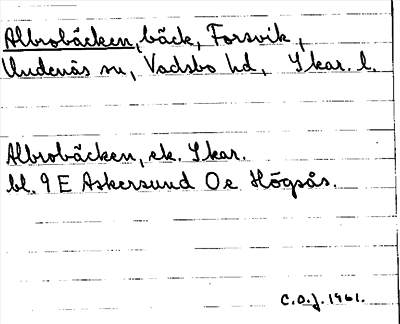 Albrobäcken, bäck, Forsvik,
Undenäs sn, Vadsbo hd, Skar. l.
Albrobäcken, ek. Skar.
bl. 9 E Askersund Oe Högsås.
C.O.J. 1961.